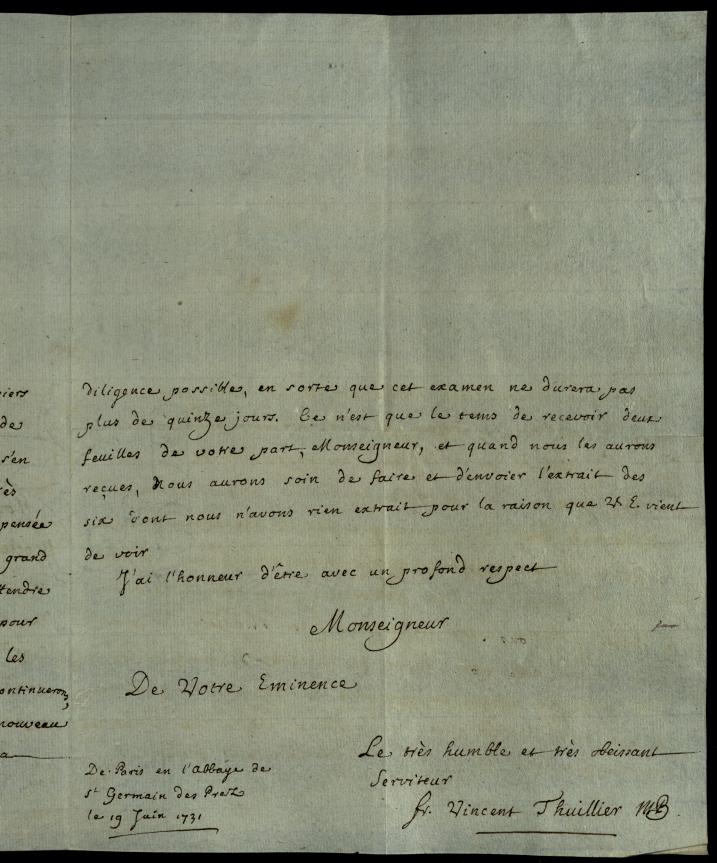 diligence possible, en sorte que cet examen ne durera pas
plus de quinze jours. Ce n'est que le tems de recevoir deux
feuilles de votre part, Monseigneur, et quand nous les aurons
reçues, Nous aurons soin de faire et d'envoier l'extrait des
six dont nous n'avons rien extrait pour la raison que V. E. vient
de voir
J'ai l'honneur d'être avec un profond respect
Monseigneur
De Votre Eminence
Le très humble et très obeissant
Serviteur
fr. Vincent Thuillier MB
De Paris en l'abbaye de
St Germain des Prez
le 19 Juin 1731
de
s'en
pensée
grand
tendre
pour
les
ontinuerons,
nouveau
a